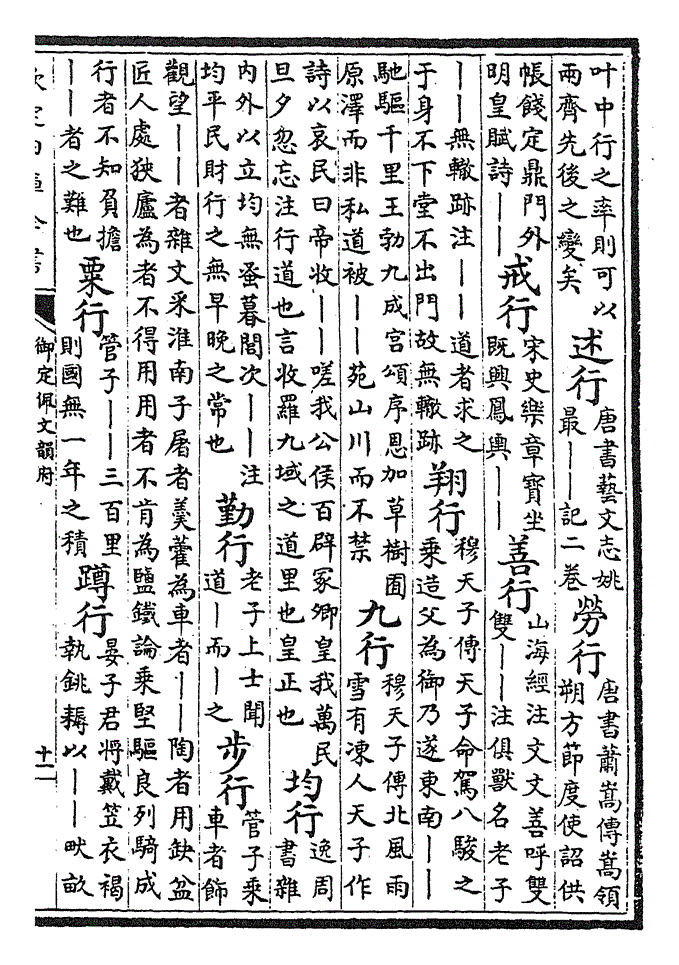 叶中行之率則可以
兩齊先後之變矣
述行
唐書藝文志姚
最——記二卷
勞行
唐書蕭嵩傳嵩領
朔方節度使詔供
帳餞定鼎門外
明皇賦詩——
戒行
宋史樂章寶坐
既興鳳輿——
善行
山海經注文文善呼雙
雙——注俱獸名老子
——無轍跡注——道者求之
于身不下堂不出門故無轍跡
翔行
穆天子傳天子命駕八駿之
乘造父為御乃遂東南——
馳驅千里王勃九成宮頌序恩加草樹囿
原澤而非私道被——苑山川而不禁
九行
穆天子傳北風雨
雪有凍人天子作
詩以哀民曰帝收——嗟我公侯百辟冢卿皇我萬民
旦夕忽忘注行道也言收羅九域之道里也皇正也
均行
逸周
書雜
內外以立均無蚤暮閭次——注
均平民財行之無早晚之常也
勤行
老子上士聞
道—而—之
步行
管子乘
車者飾
觀望——者雜文采淮南子屠者羹藿為車者——陶者用缺盆
匠人處狹廬為者不得用用者不肯為鹽鐵論乘堅驅良列騎成
行者不知負擔
——者之難也
粟行
管子——三百里
則國無一年之積
蹲行
晏子君將戴笠衣褐
執銚耨以——畎畝
欽定四庫全書
御定佩文韻府
十二